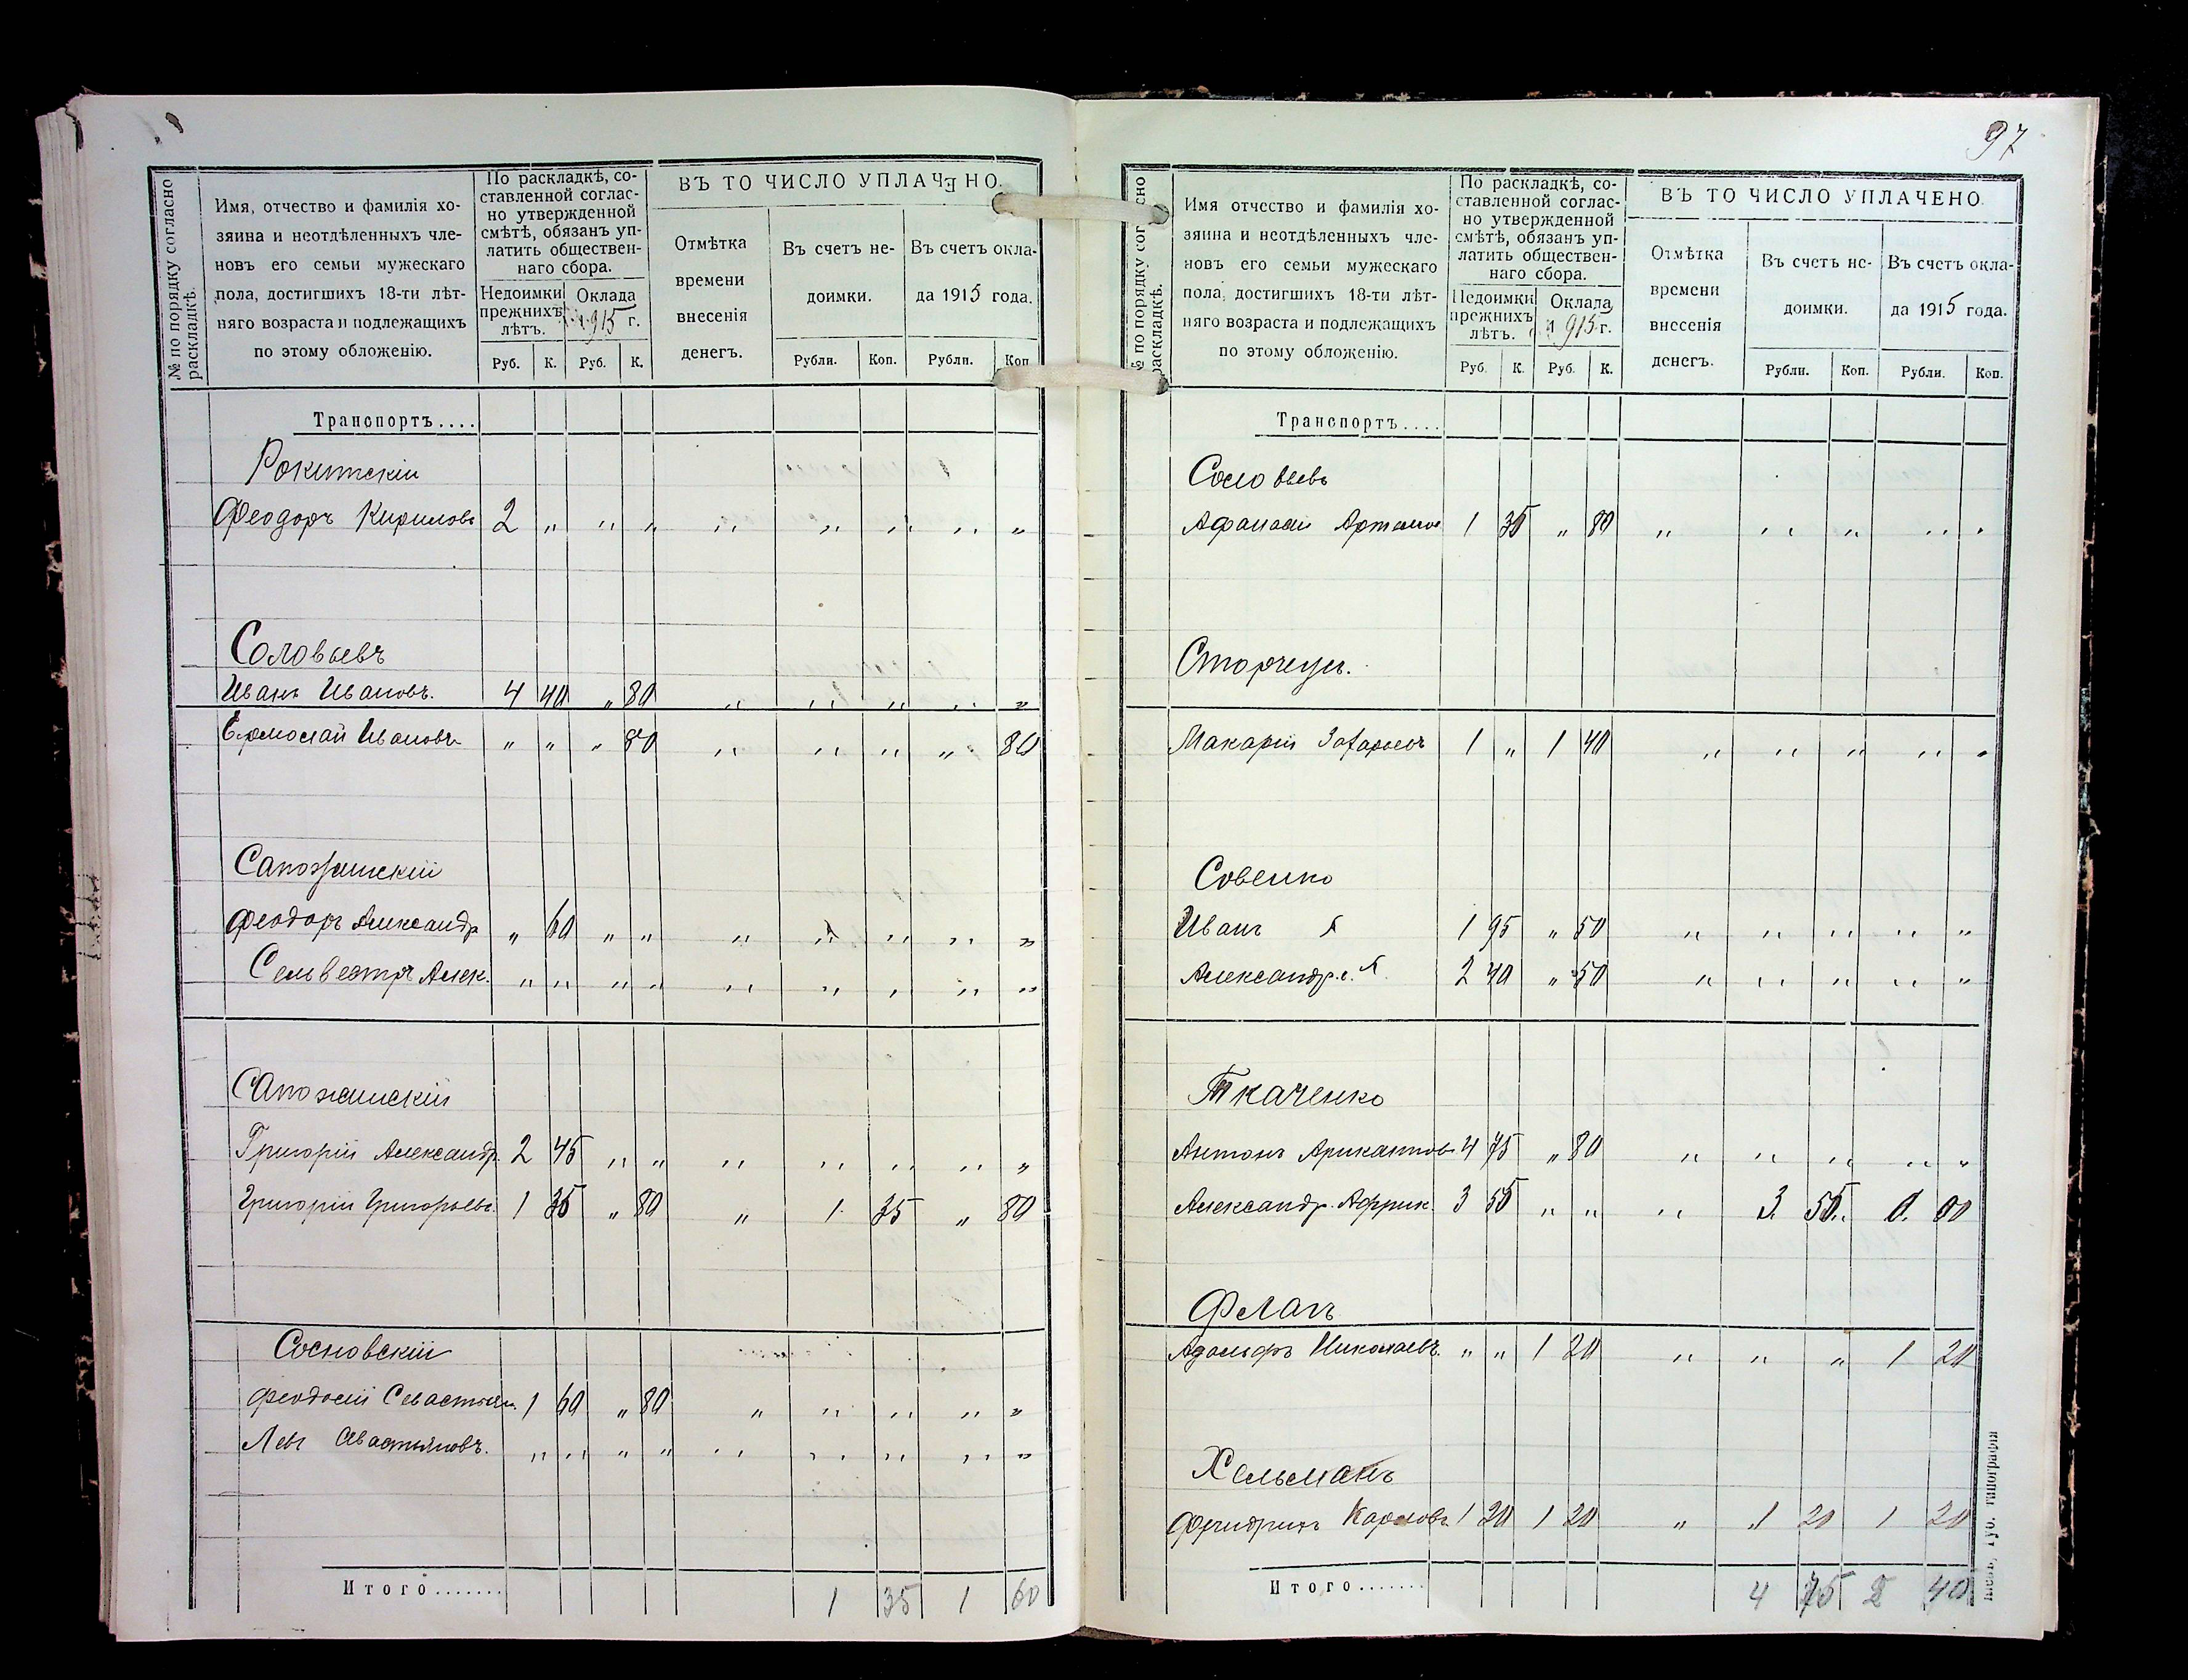 97
№ по порядку согласно раскладкѣ.
Имя, отчество и фамилія хо-
зяина и неотдѣленныхъ чле-
новъ его семьи мужескаго
пола, достигшихъ 18-ти лѣт-
няго возраста и подлежащихъ
по этому обложенію.
По раскладкѣ, со-
ставленной соглас-
но утвержденной
смѣтѣ, обязанъ уп-
латить обществен-
наго сбора.
Недоимки
прежнихъ
лѣтъ.
Оклада
1915 г.
Руб. К. Руб. К.
ВЪ ТО ЧИСЛО УПЛАЧЕНО.
Отмѣтка
времени
внесенія
денегъ.
Въ счетъ не-
доимки.
Въ счетъ окла-
да 1915 года.
Рубли. Коп. Рубли. Коп
Транспортъ....
Рокитскій
Феодоръ Кириловъ 2 „ „ „ „ „ „ „ „
Соловьевъ
Иванъ Ивановъ. 4 40 „ 80 „ „ „ „ „
Ермолай Ивановъ „ „ „ 80 „ „ „ „ 80
Сапожинскій
Феодоръ Александр „ 60 „ „ „ „ „ „ „
Сельвестръ Алек. „ „ „ „ „ „ „ „ „
Сапожинскій
Григорій Александр. 2 45 „ „ „ „ „ „ „
Григорій Григорьевъ 1 35 „ 80 „ 1 35 „ 80
Сосновскій
Феодосій Севастьян. 1 60 „ 80 „ „ „ „ „
Левъ Савастьяновъ. „ „ „ „ „ „ „ „ „
Итого....... 1 35 1 60
№ по порядку сог сно раскладкѣ.
Имя отчество и фамилія хо-
зяина и неотдѣленныхъ чле-
новъ его семьи мужескаго
пола, достигшихъ 18-ти лѣт-
няго возраста и подлежащихъ
по этому обложенію.
По раскладкѣ, со-
ставленной соглас-
но утвержденной
смѣтѣ, обязанъ уп-
латить обществен-
наго сбора.
Недоимки
прежнихъ
лѣтъ.
Оклада
1915 г.
Руб. К. Руб. К.
ВЪ ТО ЧИСЛО УПЛАЧЕНО.
Отмѣтка
времени
внесенія
денегъ.
Въ счетъ не-
доимки.
Въ счетъ окла-
да 1915 года.
Рубли. Коп. Рубли. Коп.
Транспортъ....
Соловьевъ
Афанасій 1 35 „ 80 „ „ „ „ „
Сторчеусъ.
Макарій Захарьевъ 1 „ 1 40 „ „ „ „ „
Совенко
Иванъ Я 1 95 „ 50 „ „ „ „ „
Александръ Я. 2 40 „ 50 „ „ „ „ „
Ткаченко
Антонъ 4 75 „ 80 „ „ „ „ „
Александр. Африк. 3 55 „ „ „ 3. 55. 0. 00
Фелапъ
Адольфъ Николаевъ. „ „ 1 20 „ „ „ 1 20
Хельманъ
Фридрихъ Карловъ 1 20 1 20 „ 1 20 1 20
Итого....... 4 75 2 40
губ. типографія